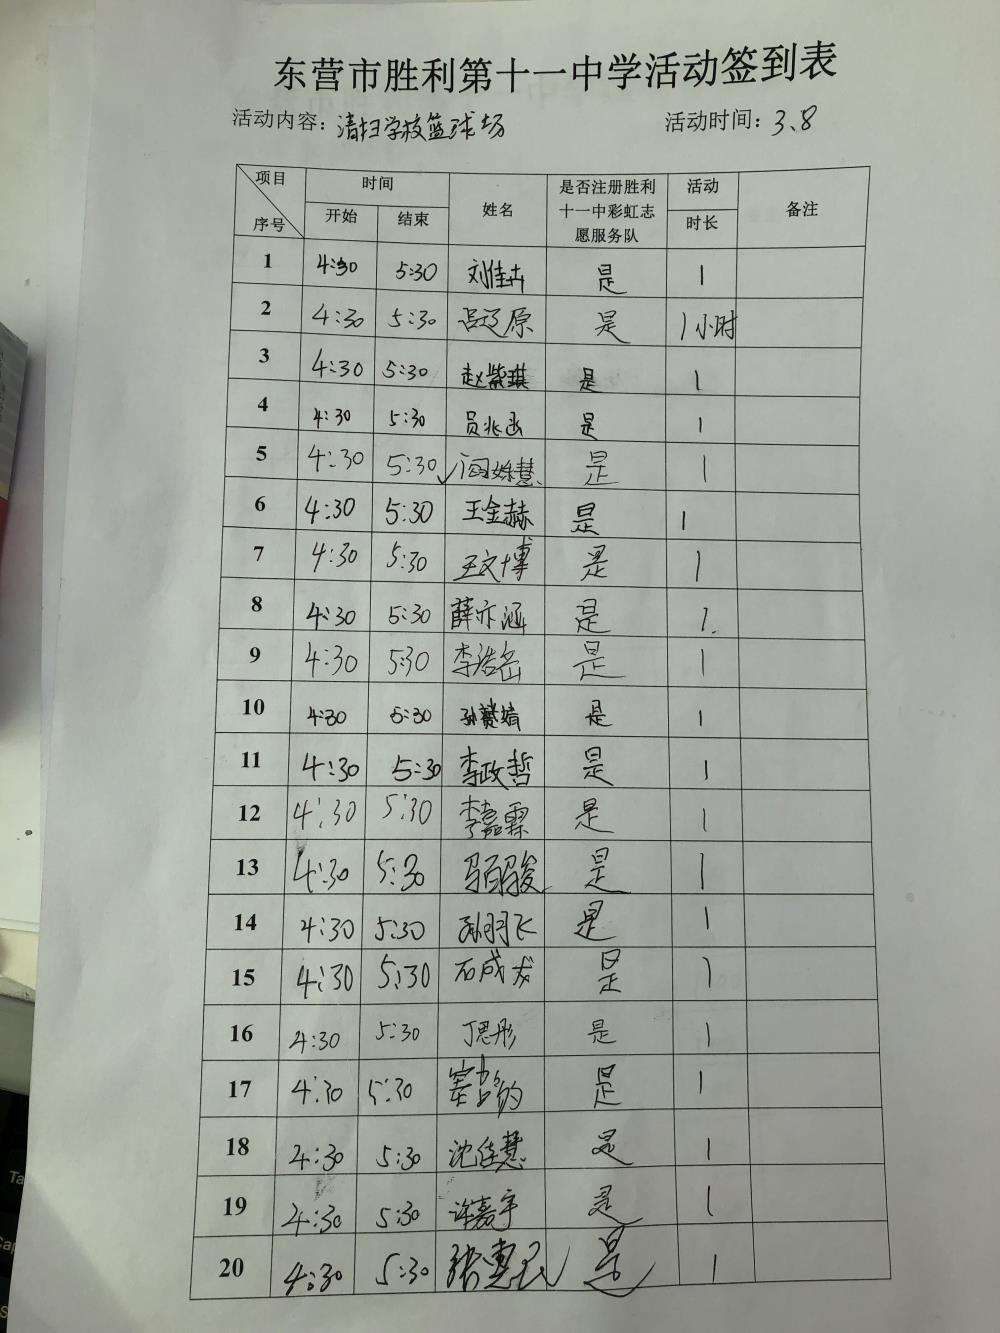 东营市胜利第十一中学活动签到表
活动内容：清扫学校篮球场 活动时间：3、8
项目 时间 姓名 是否注册胜利十一中彩虹志愿服务队 活动时长 备注
序号 开始 结束
1 4:30 5:30 刘佳卉 是 1
2 4:30 5:30 吕辽原 是 1小时
3 4:30 5:30 赵紫琪 是 1
4 4:30 5:30 员兆函 是 1
5 4:30 5:30 是 1
6 4:30 5:30 王金赫 是 1
7 4:30 5:30 王文博 是 1
8 4:30 5:30 薛亦涵 是 1.
9 4:30 5:30 李浩岳 是 1
10 4:30 5:30 是 1
11 4:30 5:30 李政哲 是 1
12 4:30 5:30 李嘉霖 是 1
13 4:30 5:30 是 1
14 4:30 5:30 孙羽飞 是 1
15 4:30 5:30 石成龙 是 1
16 4:30 5:30 丁思彤 是 1
17 4:30 5:30 是 1
18 4:30 5:30 沈佳慧 是 1
19 4:30 5:30 许嘉宇 是 1
20 4:30 5:30 是 1